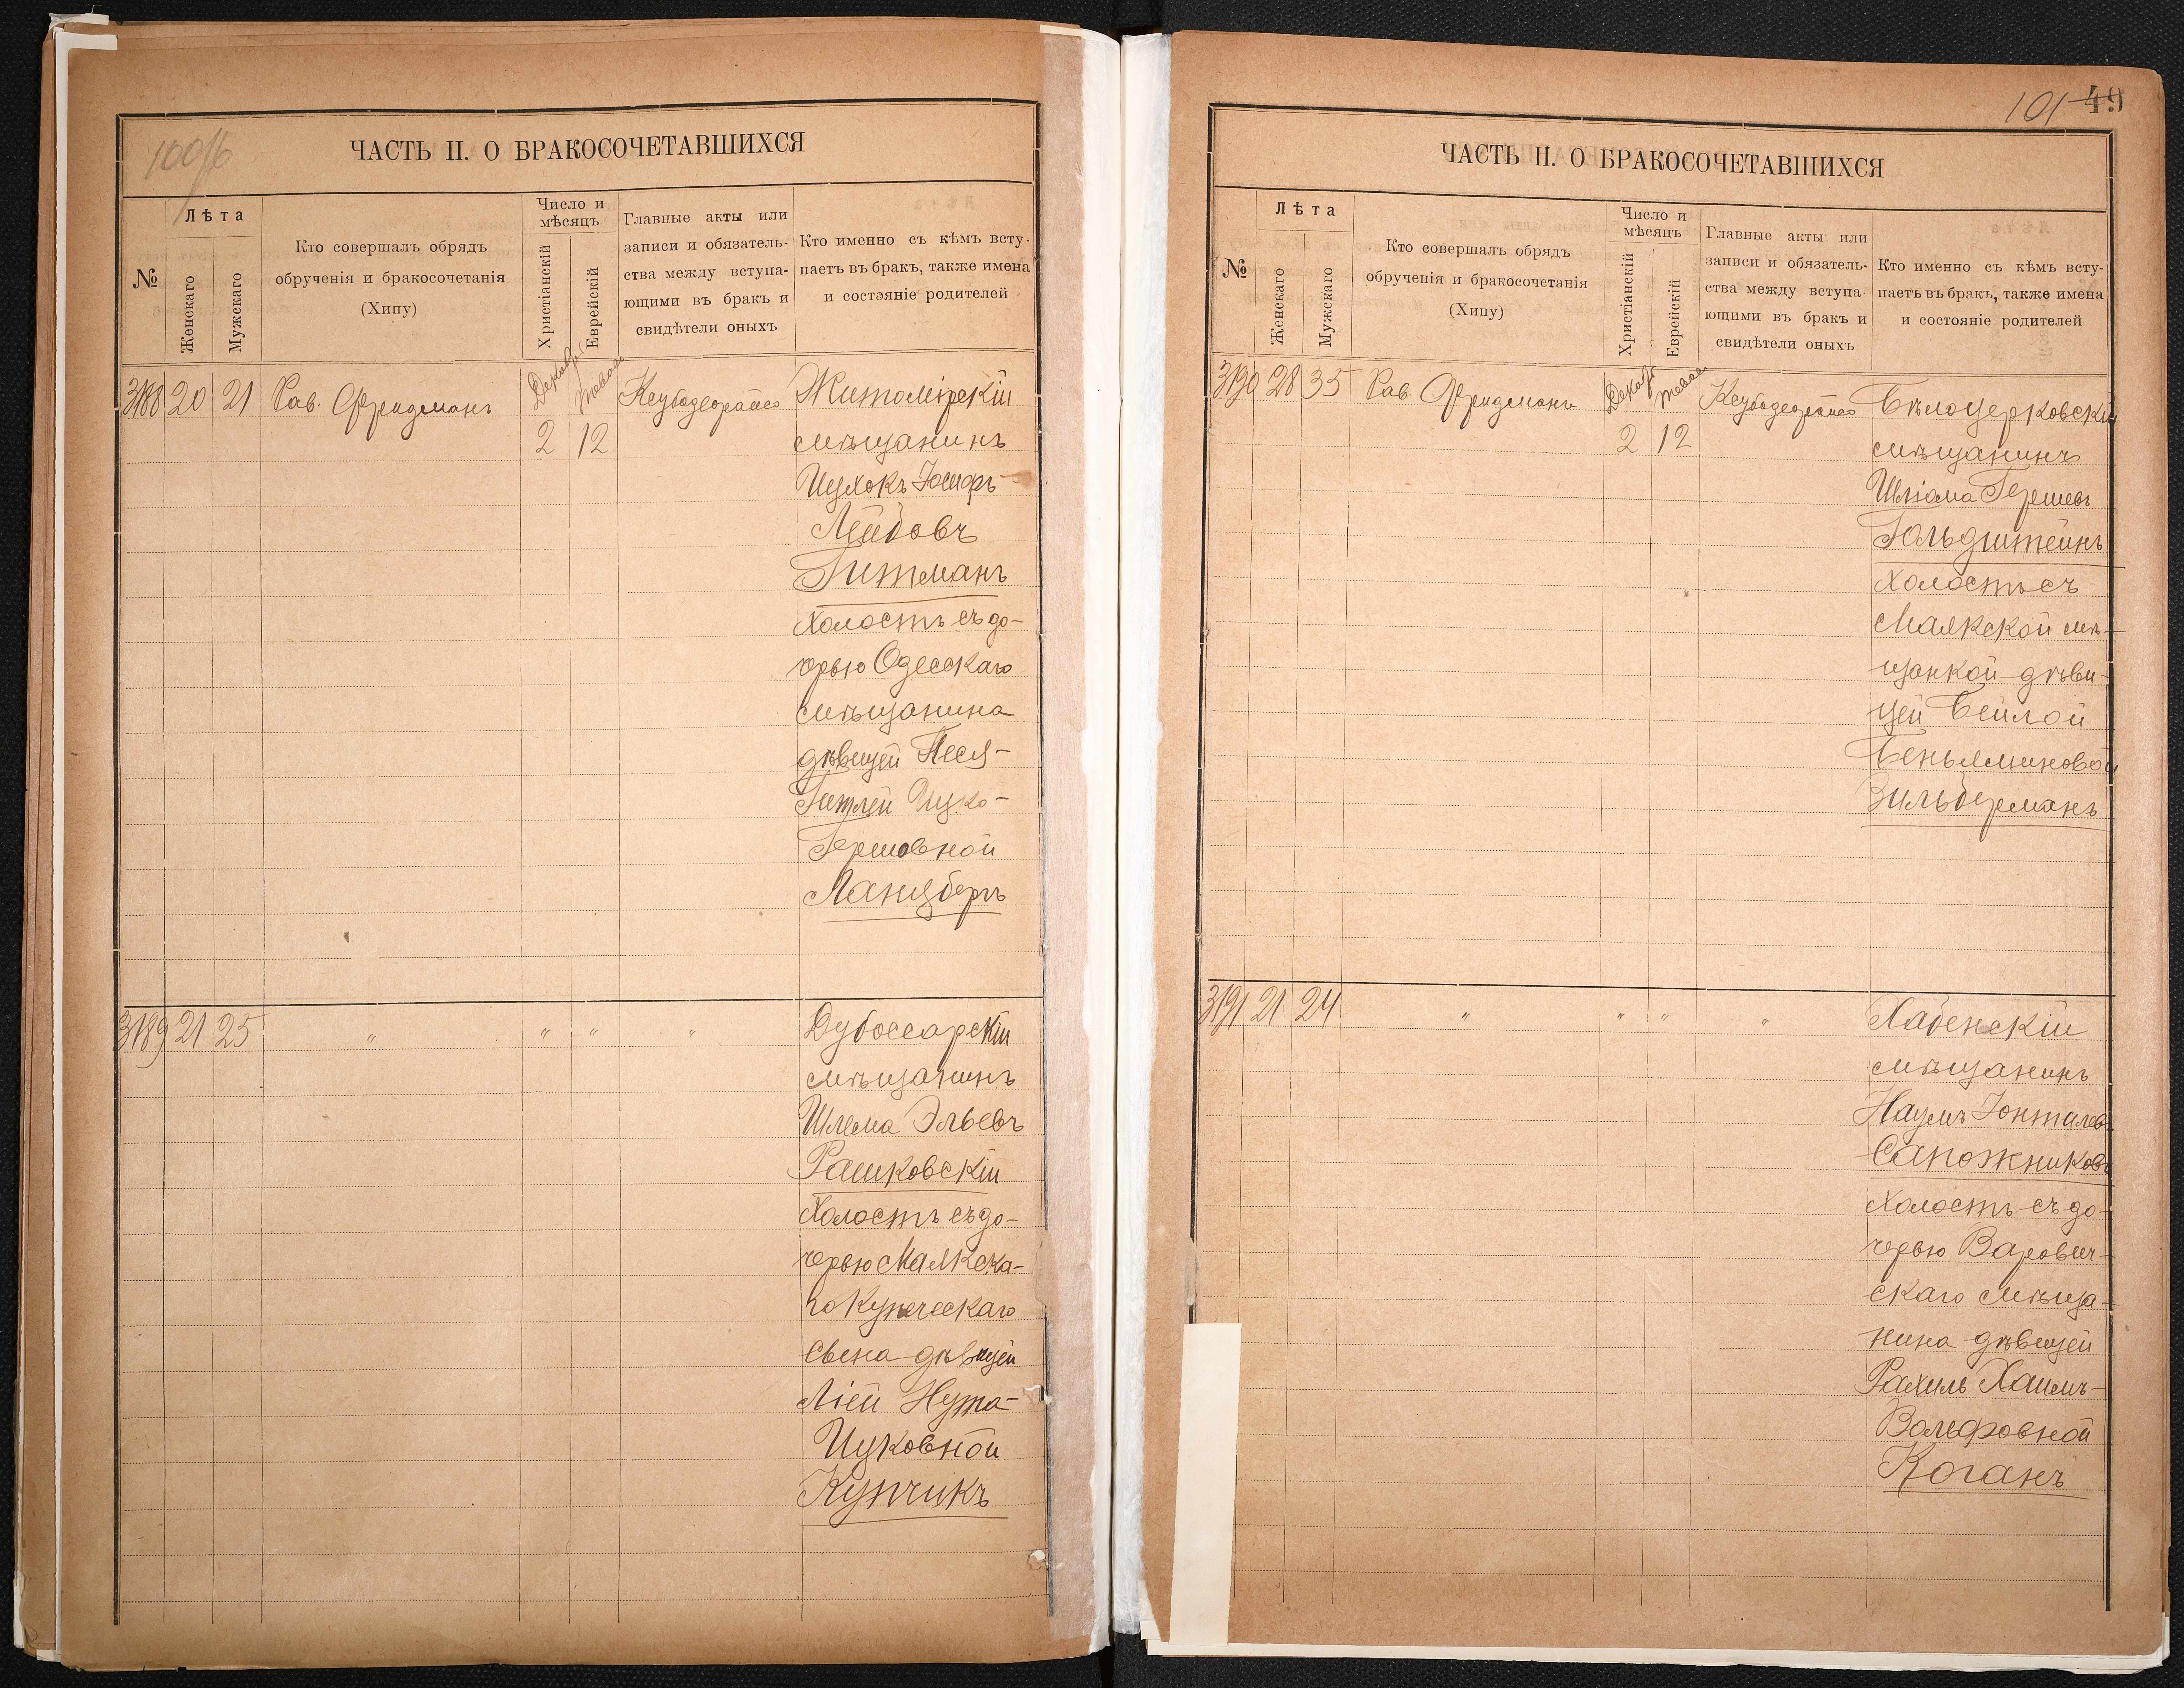 100об
ЧАСТЬ II. О БРАКОСОЧЕТАВШИХСЯ
№
Лѣта
Женскаго
Мужскаго
Кто совершалъ обрядъ
обрученія и бракосочетанія
(Хипу)
Число и
мѣсяцъ
Христіанскій
Еврейскій
Главные акты или
записи и обязатель-
ства между вступа-
ющими въ бракъ и
свидѣтели оныхъ
Кто именно съ кѣмъ всту-
паетъ въ бракъ, также имена
и состоянie родителей
3188 20 21 Рав. Фридманъ
Декабр
2
12
Житомірскій
мѣщанинъ
Ицхокъ Іосифъ
Лейбовъ
Гитманъ
холостъ съ до-
черью Одесскаго
мѣщанина
дѣвицей Песя-
Гитлей Ицко-
Гершовной
Ланцбергъ
3189 21 25 " " " "
Дубоссарскій
мѣщанинъ
Шлема Эльевъ
Рашковскій
холостъ съ до-
черью Маякска-
го Купеческаго
сына дѣвицей
Ліей Нута-
Ицковной
Купчикъ
101 49
ЧАСТЬ II. О БРАКОСОЧЕТАВШИХСЯ
№
Лѣта
Женскаго
Мужскаго
Кто совершалъ обрядъ
обрученія и бракосочетанія
(Хипу)
Число и
мѣсяцъ
Христіанскій
Еврейскій
Главные акты или
записи и обязатель-
ства между вступа-
ющими въ бракъ и
свидѣтели оныхъ
Кто именно съ кѣмъ всту-
паетъ въ бракъ, также имена
и состояніе родителей
3190 28 35 Рав. Фридманъ
Декабр
2
12
Бѣлоцерковскій
мѣщанинъ
Шліома Гершевъ
Гольдштейнъ
холостъ съ
Маякской мѣ-
щанкой дѣви-
цей Бейлой
Беньяминовой
Зильберманъ
3191 21 24 " " " "
Хабенскій
мѣщанинъ
Наумъ Іонтилев
Сапожниковъ
холостъ съ до-
черью Варович-
скаго мѣща-
нина дѣвицей
Рахиль Хаимъ-
Вольфовной
Коганъ